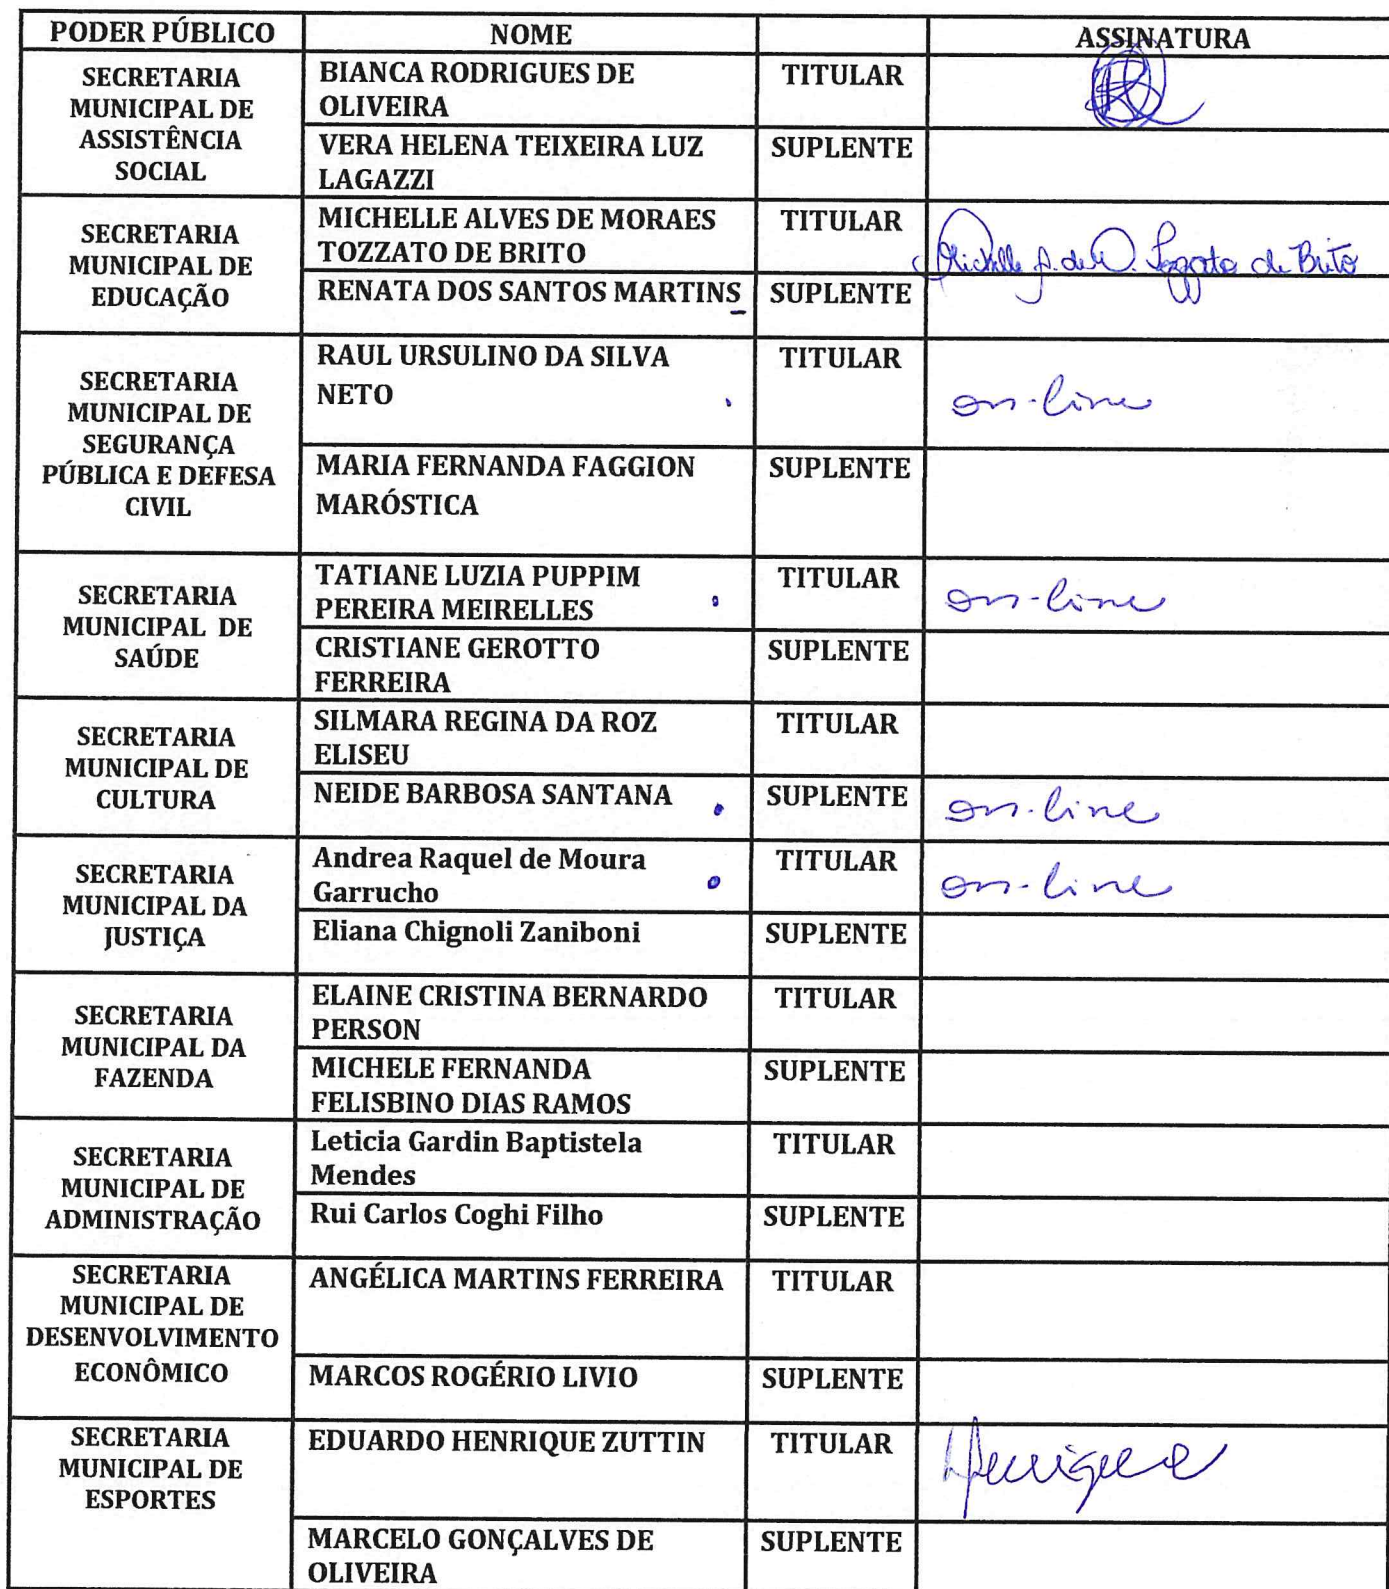 PODER PÚBLICO NOME ASSINATURA
SECRETARIA
MUNICIPAL DE
ASSISTÊNCIA
SOCIAL
BIANCA RODRIGUES DE
OLIVEIRA
TITULAR
VERA HELENA TEIXEIRA LUZ
LAGAZZI
SUPLENTE
SECRETARIA
MUNICIPAL DE
EDUCAÇÃO
MICHELLE ALVES DE MORAES
TOZZATO DE BRITO
TITULAR
Michelle A. de M. Tozzato de Brito
RENATA DOS SANTOS MARTINS
SUPLENTE
SECRETARIA
MUNICIPAL DE
SEGURANÇA
PÚBLICA E DEFESA
CIVIL
RAUL URSULINO DA SILVA
NETO
TITULAR
on-line
MARIA FERNANDA FAGGION
MARÓSTICA
SUPLENTE
SECRETARIA
MUNICIPAL DE
SAÚDE
TATIANE LUZIA PUPPIM
PEREIRA MEIRELLES
TITULAR
on-line
CRISTIANE GEROTTO
FERREIRA
SUPLENTE
SECRETARIA
MUNICIPAL DE
CULTURA
SILMARA REGINA DA ROZ
ELISEU
TITULAR
NEIDE BARBOSA SANTANA
SUPLENTE
on-line
SECRETARIA
MUNICIPAL DA
JUSTIÇA
Andrea Raquel de Moura
Garrucho
TITULAR
on-line
Eliana Chignoli Zaniboni
SUPLENTE
SECRETARIA
MUNICIPAL DA
FAZENDA
ELAINE CRISTINA BERNARDO
PERSON
TITULAR
MICHELE FERNANDA
FELISBINO DIAS RAMOS
SUPLENTE
SECRETARIA
MUNICIPAL DE
ADMINISTRAÇÃO
Leticia Gardin Baptistela
Mendes
TITULAR
Rui Carlos Coghi Filho
SUPLENTE
SECRETARIA
MUNICIPAL DE
DESENVOLVIMENTO
ECONÔMICO
ANGÉLICA MARTINS FERREIRA
TITULAR
MARCOS ROGÉRIO LIVIO
SUPLENTE
SECRETARIA
MUNICIPAL DE
ESPORTES
EDUARDO HENRIQUE ZUTTIN
TITULAR
Henrique
MARCELO GONÇALVES DE
OLIVEIRA
SUPLENTE